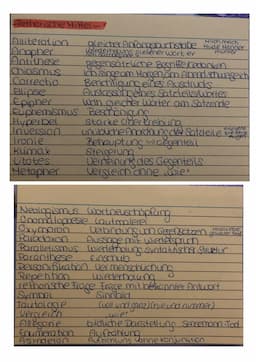 Ästhetische Mittel
Alliteration gleicher Anfangsbuchstabe
Anapher gleicher Wörter
Antithese gegensätzliche
Chiasmus
Correctio Berichtigung eines Ausdrucks
Ellipse Auslassung eines Satzteils/Wortes
Epipher gleicher Wörter am Satzende
Euphemismus Beschönigung
Hyperbel starke Übertreibung
Inversion unübliche Anordnung der Satzteile
Ironie Behauptung Gegenteil
Klimax Steigerung
Litotes Verneinung des Gegenteils
Metapher Vergleich ohne „wie“
Neologismus Wortneuschöpfung
Onomatopoesie Lautmalerei
Oxymoron Verbindung von Gegensätzen
Paradoxon Aussage mit Widerspruch
Parallelismus Wiederholung syntaktischer Struktur
Parenthese Einschub
Personifikation Vermenschlichung
Repetition Wiederholung
rhetorische Frage Frage mit bekannter Antwort
Symbol Sinnbild
Tautologie
Vergleich „wie“
Allegorie bildliche Darstellung Sensenmann: Tod
Enumeration Aufzählung
Asyndeton ohne Konjunktion